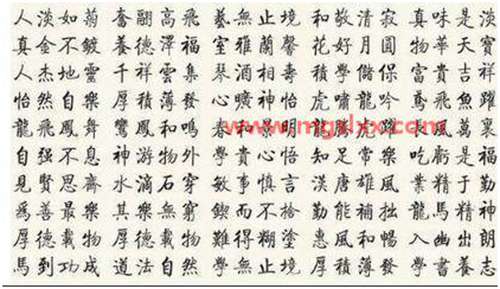 人淡如菊 奮翮高飛 藝無止境 和敬清寂 真味是淡
真金不鍍 養德澤福 室雅蘭馨 花好月圓 物華天寶
人杰地靈 千祥雲集 積學儲 富貴吉祥
怡然自樂 厚積薄發 心曠神怡 虎嘯龍吟 鳶飛魚躍
龍飛鳳舞 鸞鳳和鳴 春和景明
自强不息 神游物外 學貴心悟 知足常樂 吃虧是福
見賢思齊 水滴石穿 敏事慎言 漢唐雄風 業精于勤
爲善最樂 其樂無窮 鍥而不捨 勤能補拙 龍馬精神
厚德載物 厚德載物 難得糊塗 惠風和暢 入幽出朗
馬到功成 道法自然 學無止境 厚積薄發 學書養志